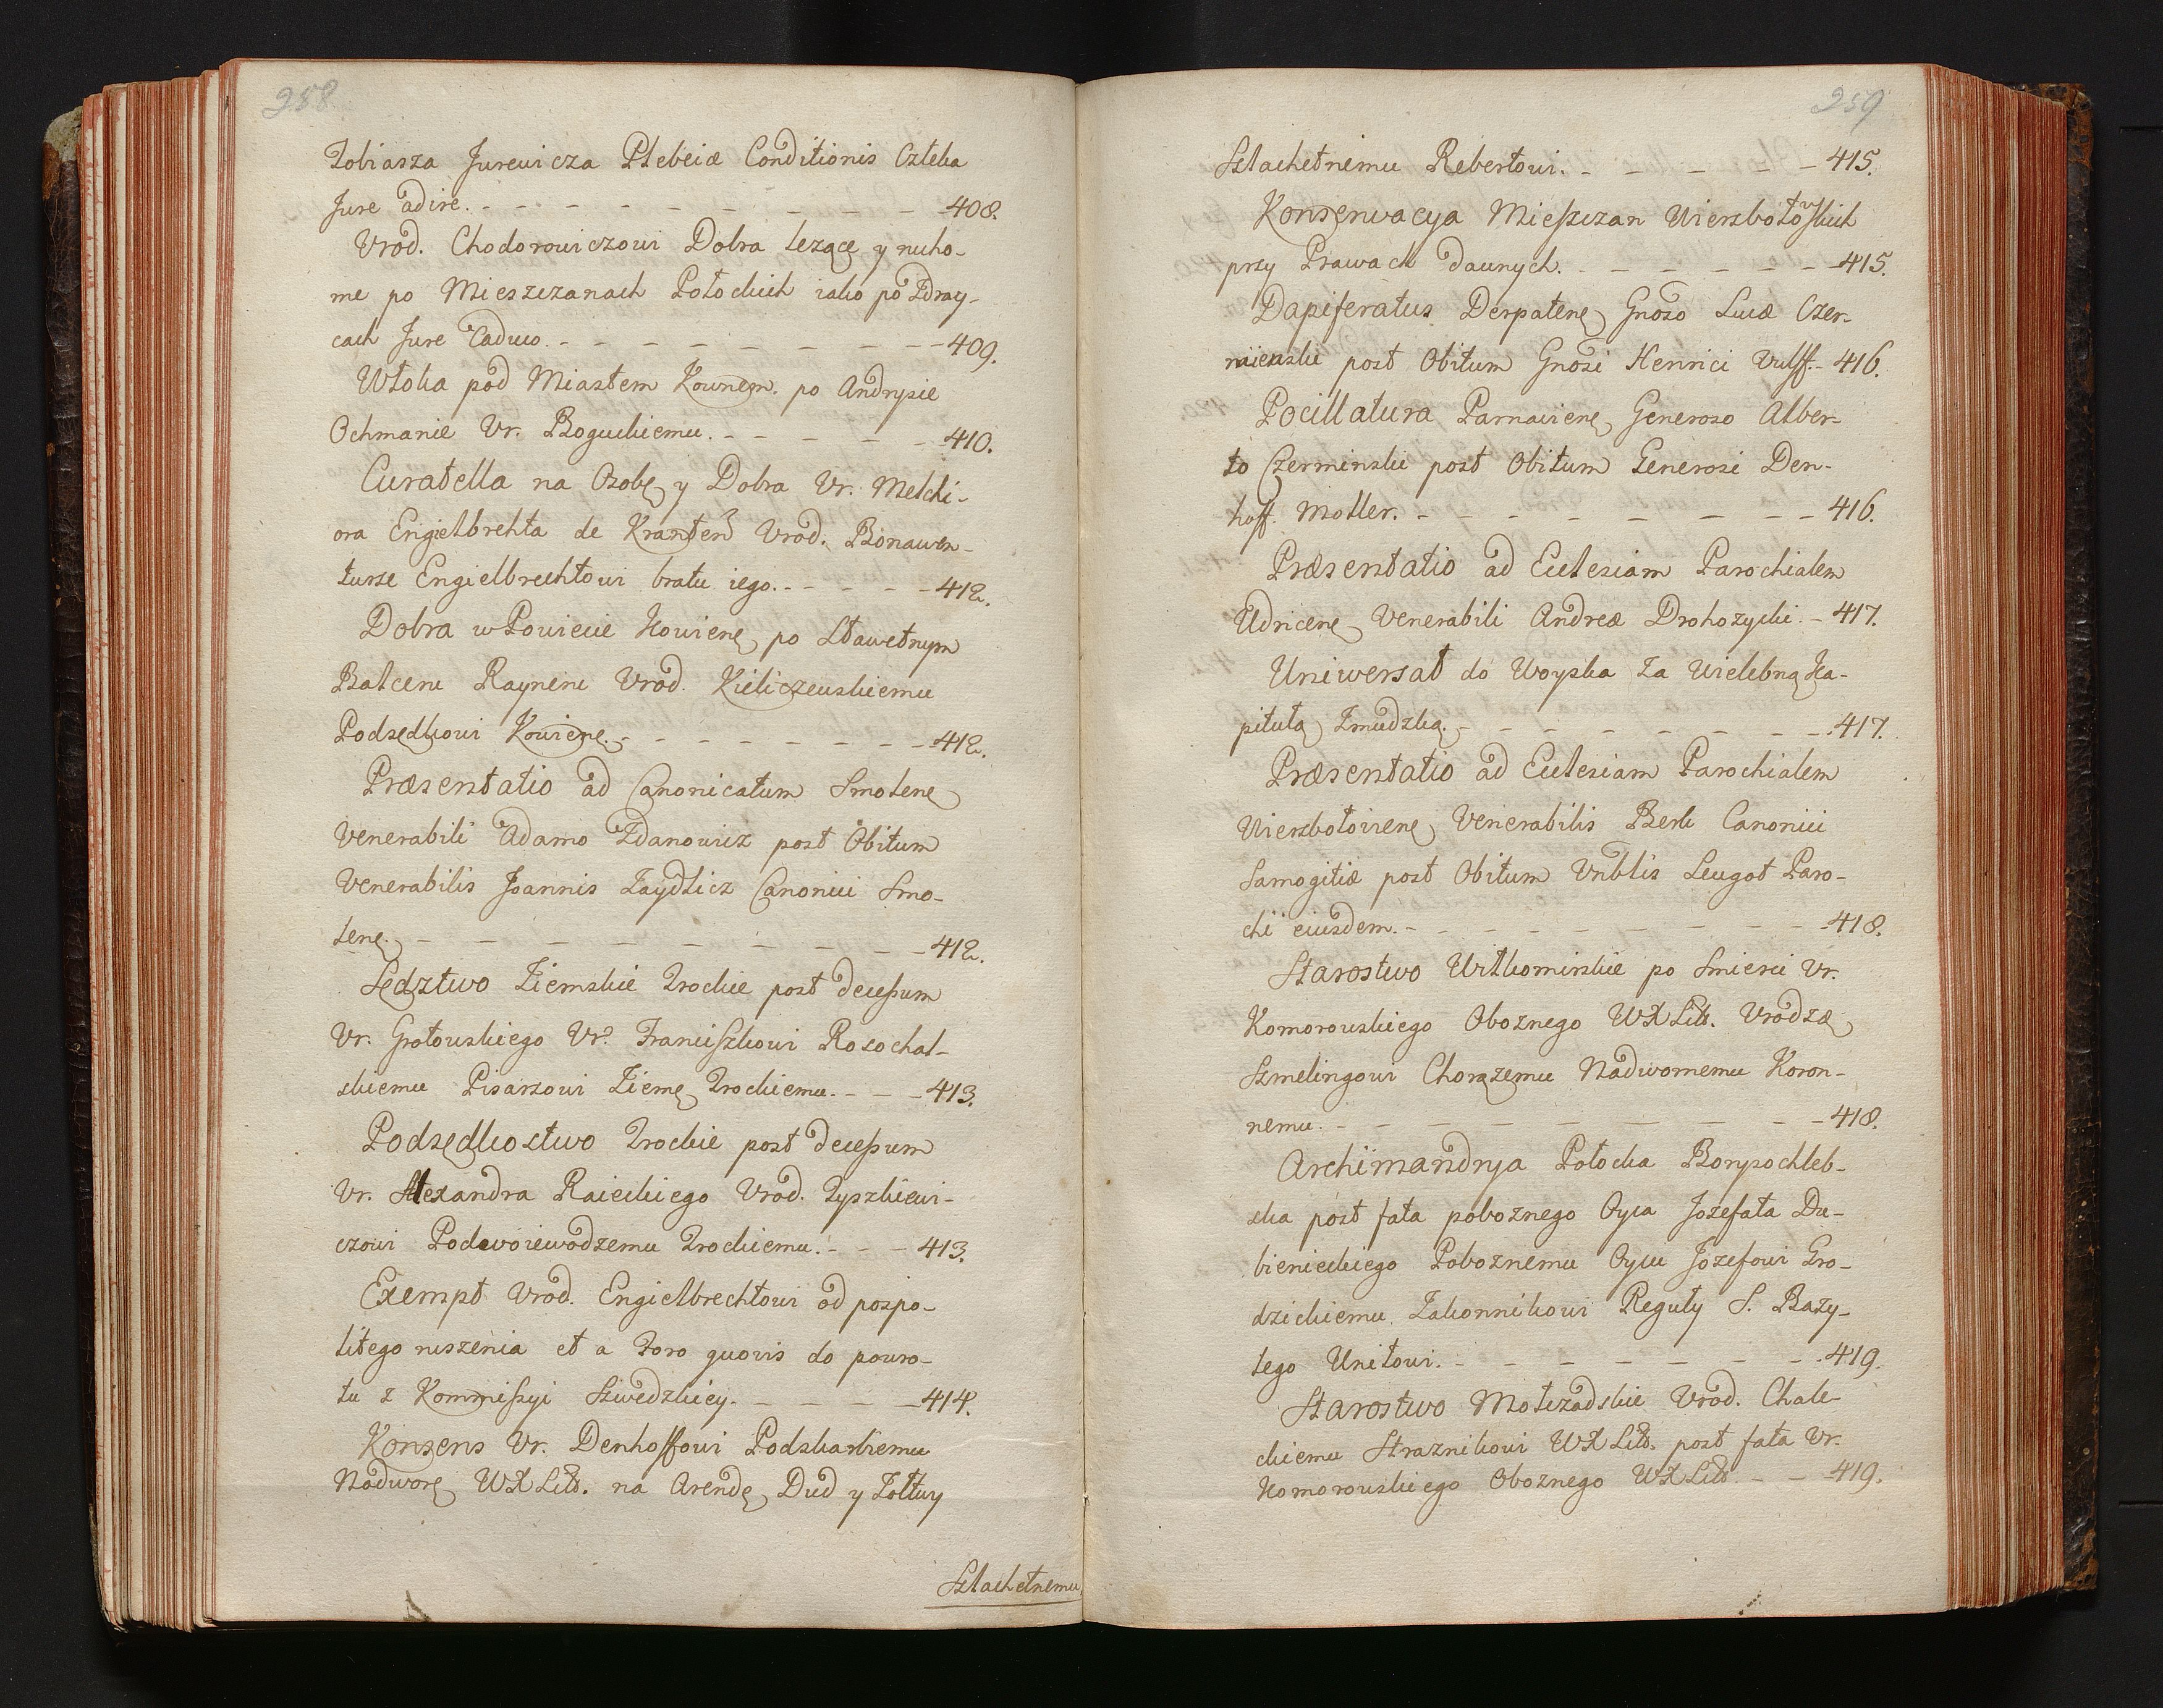 258
Tobiasza Jurewicza Plebeiæ Conditionis Człeka
Jure adire. - - - - - - - - - 408.
Vrod. Chodorowiczowi Dobra lezące y ruho-
me po Mieszczanach Połockich iako po Zdray-
cach Jure Caduco. - - - - - - - - 409.
Włoka pod Miastem Kownem. po Andrysie
Ochmanie Vr. Boguckiemu. - - - - - 410.
Curatella na Osobę y Dobra Vr. Melchi-
ora Engielbrehta de Kranten Vrod. Bonawen-
turze Engielbrechtowi bratu iego. - - - - - 412.
Dobra w Powiecie Kowienę po Sławetnym
Balceru Rayneru Vrod. Kieliczewskiemu
Podsędkowi Kowienę. - - - - - - - 412.
Præsentatio ad Canonicatum Smolenę
Venerabili Adamo Zdanowicz post Obitum
Venerabilis Joannis Zaydlicz Canonici Smo-
lenę. - - - - - - - - 412.
Sędztwo Ziemskie Trockie post decessum
Vr. Grotowskiego Vr. Franciszkowi Rosochac-
skiemu Pisarzowi Ziemę Trockiemu. - - - 413.
Podsędkostwo Trockie post decessum
Vr. Alexandra Raieckiego Vrod. Tyszkiewi-
czowi Podwoiewodzemu Trockiemu. - - - 413.
Exempt Vrod. Engielbrechtowi od pospo-
litego ruszenia et a Foro quovis do powro-
tu z Kommissyi Szwedzkiey. - - - - 414.
Konsens Vr. Denhoffowi Podskarbiemu
Nadworę WXLitt. na Arendę Dud y Zołtwy
Szlachetnemu
259
Szlachetnemu Rebertowi. - - - - - 415.
Konserwacya Mieszczan Wierzbołowskich
przy Prawach dawnych. - - - - - - 415.
Dapiferatus Derpatenę Gnoso Lucæ Czer-
mienski post Obitum Gnosi Henrici Vulff. - 416.
Pocillatura Parnavienę Generoso Alber-
to Czerminski post Obitum Generosi Den-
hoff. Moller. - - - - - - - - 416.
Præsentatio ad Ecclesiam Parochialem
Udricenę Venerabili Andreæ Drohozycki. - 417.
Uniwersał do Woyska za Wielebną Ka-
pitułą Zmudzką. - - - - - - - 417.
Præsentatio ad Ecclesiam Parochialem
Wierzbołovienę Venerabilis Berk Canonici
Samogitiæ post Obitum Vnblis Leugot Paro-
chi eiusdem. - - - - - - - - 418.
Starostwo Wiłkomirskie po Smierci Vr.
Komorowskiego Oboznego WXLitt. Vrodzę
Szmelingowi Chorązemu Nadwornemu Koron-
nemu. - - - - - - - - 418.
Archimandrya Połocka Borysochleb-
ska post fata poboznego Oyca Jozefata Du-
bienieckiego Poboznemu Oycu Jozefowi Gro-
dzickiemu Zakonnikowi Reguły S. Bazy-
lego Unitowi. - - - - - - - 419.
Starostwo Mołczadskie Vrod. Chale-
ckiemu Straznikowi WXLitt. post fata Vr.
Komorowskiego Oboznego WXLitt. - - 419.